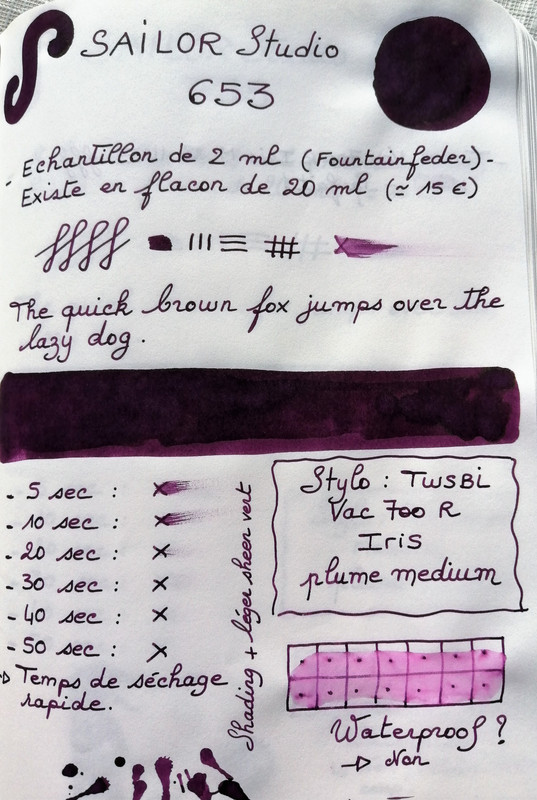 SAILOR Studio
653
- Echantillon de 2 ml (Fountainfeder) -
Existe en flacon de 20 ml (≃ 15 €)
The quick brown fox jumps over the
lazy dog.
- 5 sec :
- 10 sec :
- 20 sec :
- 30 sec :
- 40 sec :
- 50 sec :
→ Temps de séchage
rapide.
Shading + léger sheen vert
Stylo : TWSBi
Vac 700 R
Iris
plume medium
Waterproof ?
→ Non